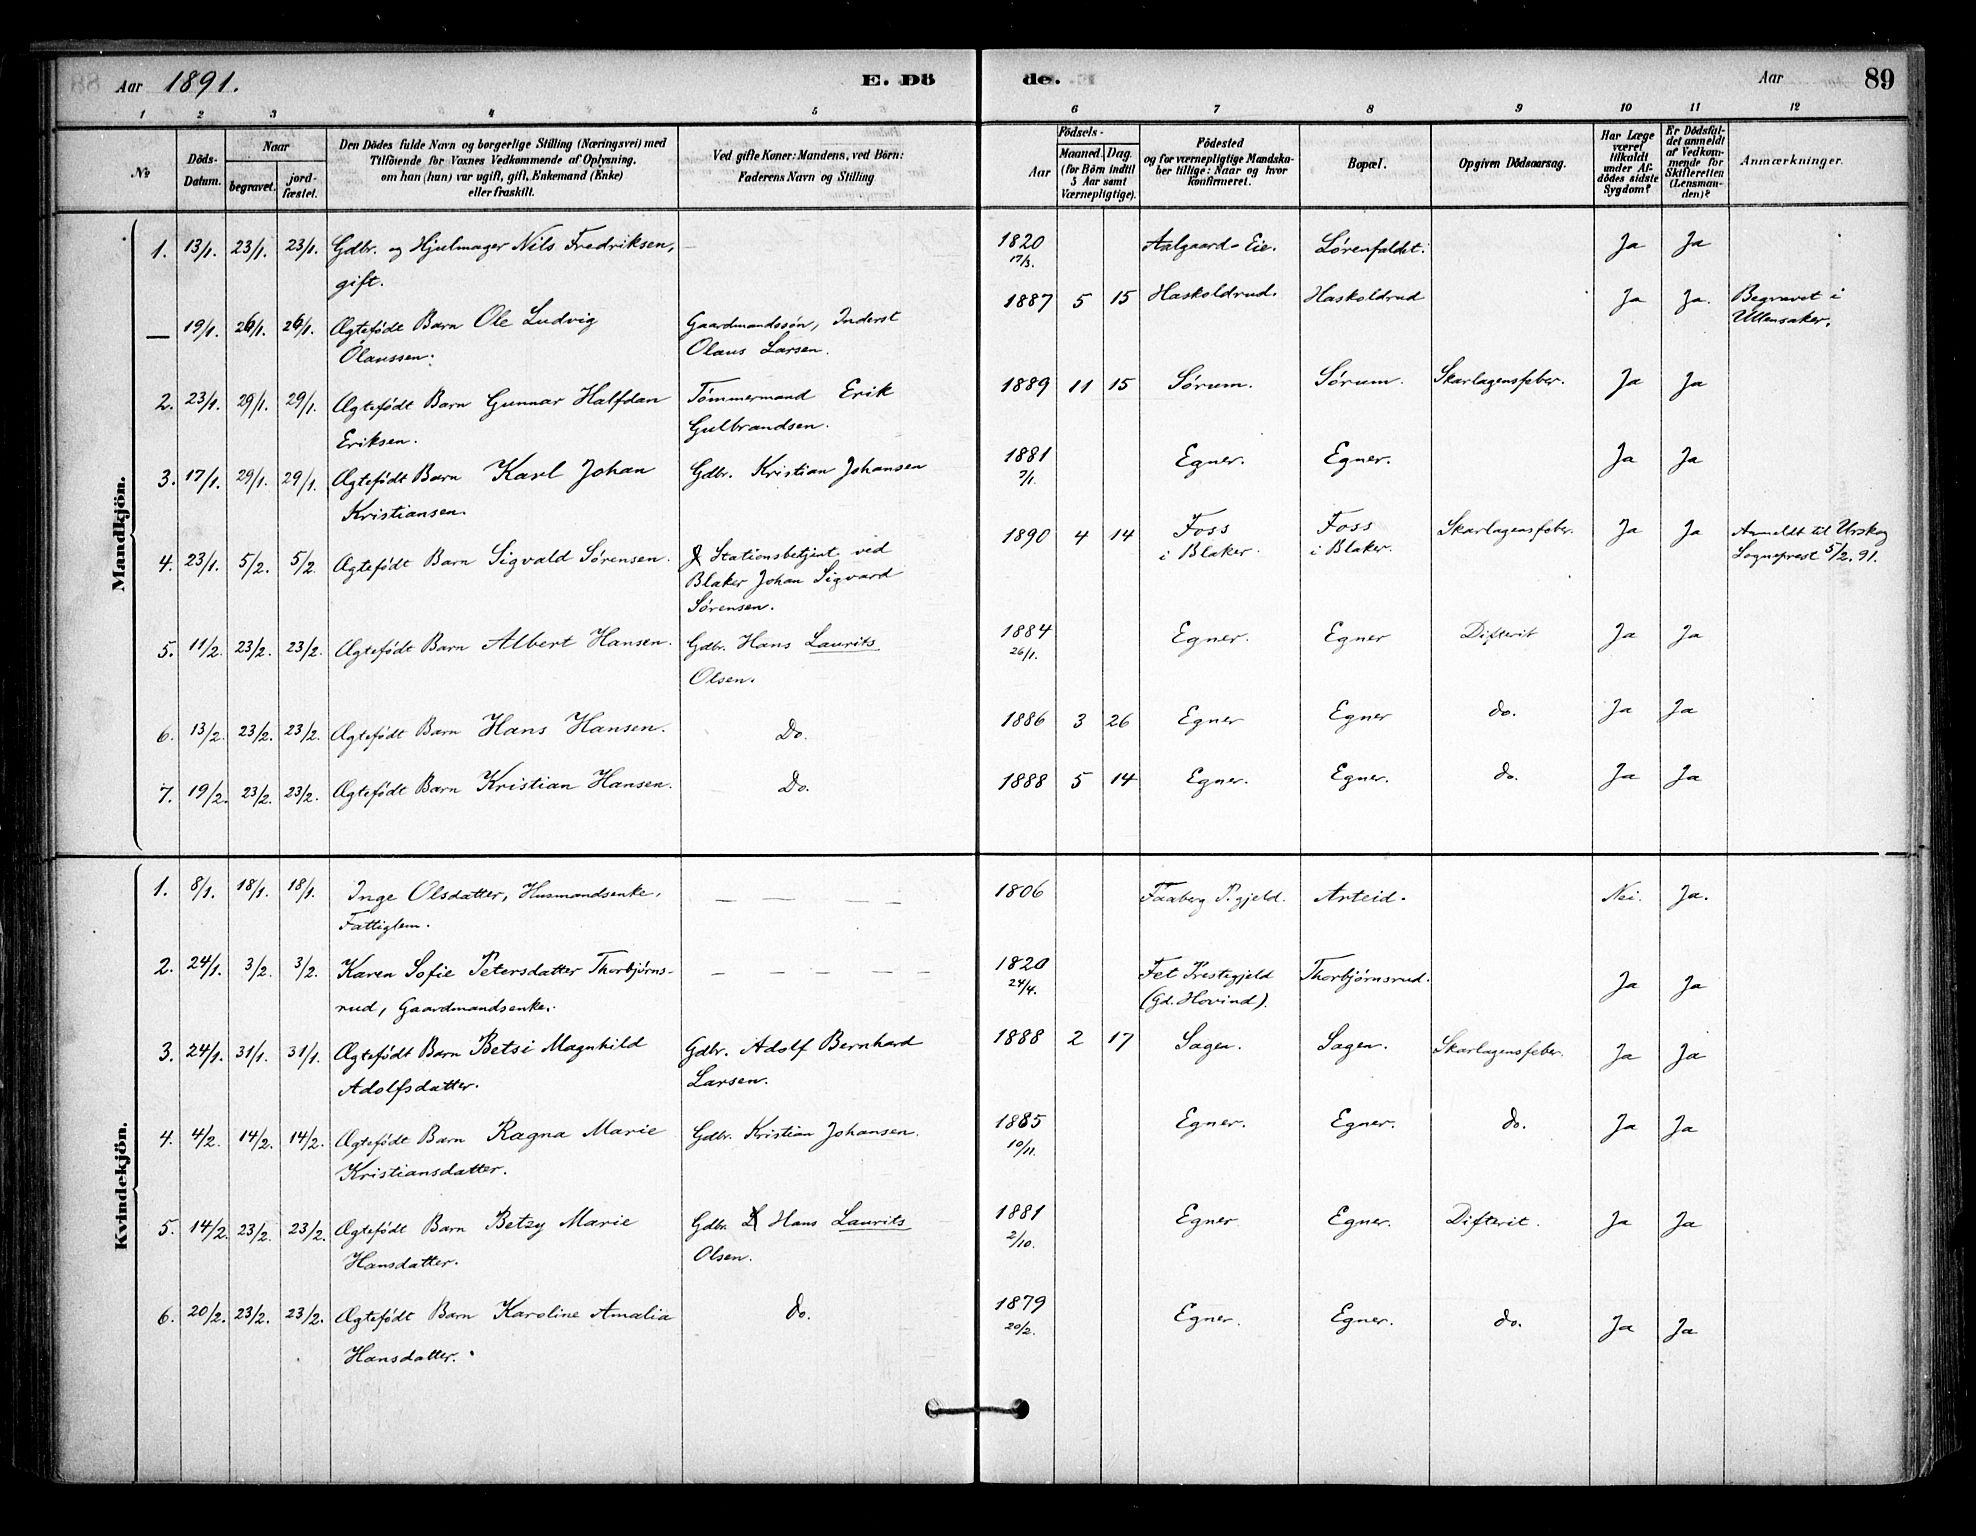 Aar 1891. E. Dö de. Aar 89
1 2 3 4 5 6 7 8 9 10 11 12
No
Döds-Datum.
Naar
begravet.
jord-fæstet.
Den Dödes fulde Navn og borgerlige Stilling (Næringsvei) med
Tilföiende for Voxnes Vedkommende af Oplysning,
om han (hun) var ugift, gift, Enkemand (Enke)
eller fraskilt.
Ved gifte Koner: Mandens, ved Börn:
Faderens Navn og Stilling
Födsels-
Aar
Maaned. Dag.
(for Börn indtil
5 Aar samt
Værnepligtige).
Födested
og for værnepligtige Mandska-
ber tillige: Naar og hvor
konfirmeret.
Bopæl.
Opgiven Dödsaarsag.
Har Læge
været
tilkaldt
under Af-
dödes sidste
Sygdom?
Er Dödsfal-
det anmeldt
af Vedkom-
mende for
Skifteretten
(Lensman-
den)?
Anmærkninger.
Mandkjön.
1. 13/1. 23/1. 23/1. Gdbr. og Hjulmager Nils Fredriksen, — 1820 Aalgaard-Eie. Lørenfaldet. Ja Ja
gift. 17/3.
— 19/1. 26/1. 26/1. Ægtefødt Barn Ole Ludvig Gaardmandssøn, Inderst 1887 5 15 Haskoldrud. Haskoldrud Ja Ja. Begravet i
Olaussen. Olaus Larsen. Ullensaker.
2. 23/1. 29/1. 29/1. Ægtefødt Barn Gunnar Halfdan Tømmermand Erik 1889 11 15 Sørum. Sørum. Skarlagensfeber. Ja Ja
Eriksen. Gulbrandsen.
3. 17/1. 29/1. 29/1. Ægtefødt Barn Karl Johan Gdbr. Kristian Johansen 1881 Egner. Egner. Ja Ja
Kristiansen. 7/1.
4. 23/1. 5/2. 5/2. Ægtefødt Barn Sigvald Sørensen. Stationsbetjent ved 1890 4 14 Foss Foss Skarlagensfeber. Ja Ja Anmeldt til Urskog
Blaker Johan Sigvard i Blaker. i Blaker. Sogneprest 5/2. 91.
Sørensen.
5. 11/2. 23/2. 23/2. Ægtefødt Barn Albert Hansen. Gdbr. Hans Laurits 1884 Egner. Egner Difterit Ja Ja
Olsen. 26/1.
6. 13/2. 23/2. 23/2. Ægtefødt Barn Hans Hansen. Do. 1886 3 26 Egner Egner do. Ja Ja
7. 19/2. 23/2. 23/2. Ægtefødt Barn Kristian Hansen. Do. 1888 5 14 Egner. Egner. do. Ja Ja
Kvindekjön.
1. 8/1. 18/1. 18/1. Inge Olsdatter, Husmandsenke, — — — — — 1806 Faaberg P.gjeld. Arteid. Nei. Ja.
Fattiglem.
2. 24/1. 3/2. 3/2. Karen Sofie Petersdatter Thorbjørns- — — — — — 1820 Fet Prestegjeld Thorbjørnsrud. Ja Ja
rud, Gaardmandsenke. 24/4. (Gd. Hovind).
3. 24/1. 31/1. 31/1. Ægtefødt Barn Betsi Magnhild Gdbr. Adolf Bernhard 1888 2 17 Sagen. Sagen. Skarlagensfeber. Ja Ja
Adolfsdatter. Larsen.
4. 4/2. 14/2. 14/2. Ægtefødt Barn Ragna Marie Gdbr. Kristian Johansen. 1885 Egner. Egner. do. Ja Ja
Kristiansdatter. 10/11.
5. 14/2. 23/2. 23/2. Ægtefødt Barn Betzy Marie Gdbr. Hans Laurits 1881 Egner. Egner. Difterit. Ja Ja
Hansdatter. Olsen. 2/10.
6. 20/2. 23/2. 23/2. Ægtefødt Barn Karoline Amalia do. 1879 Egner. Egner. do. Ja Ja
Hansdatter. 20/2.